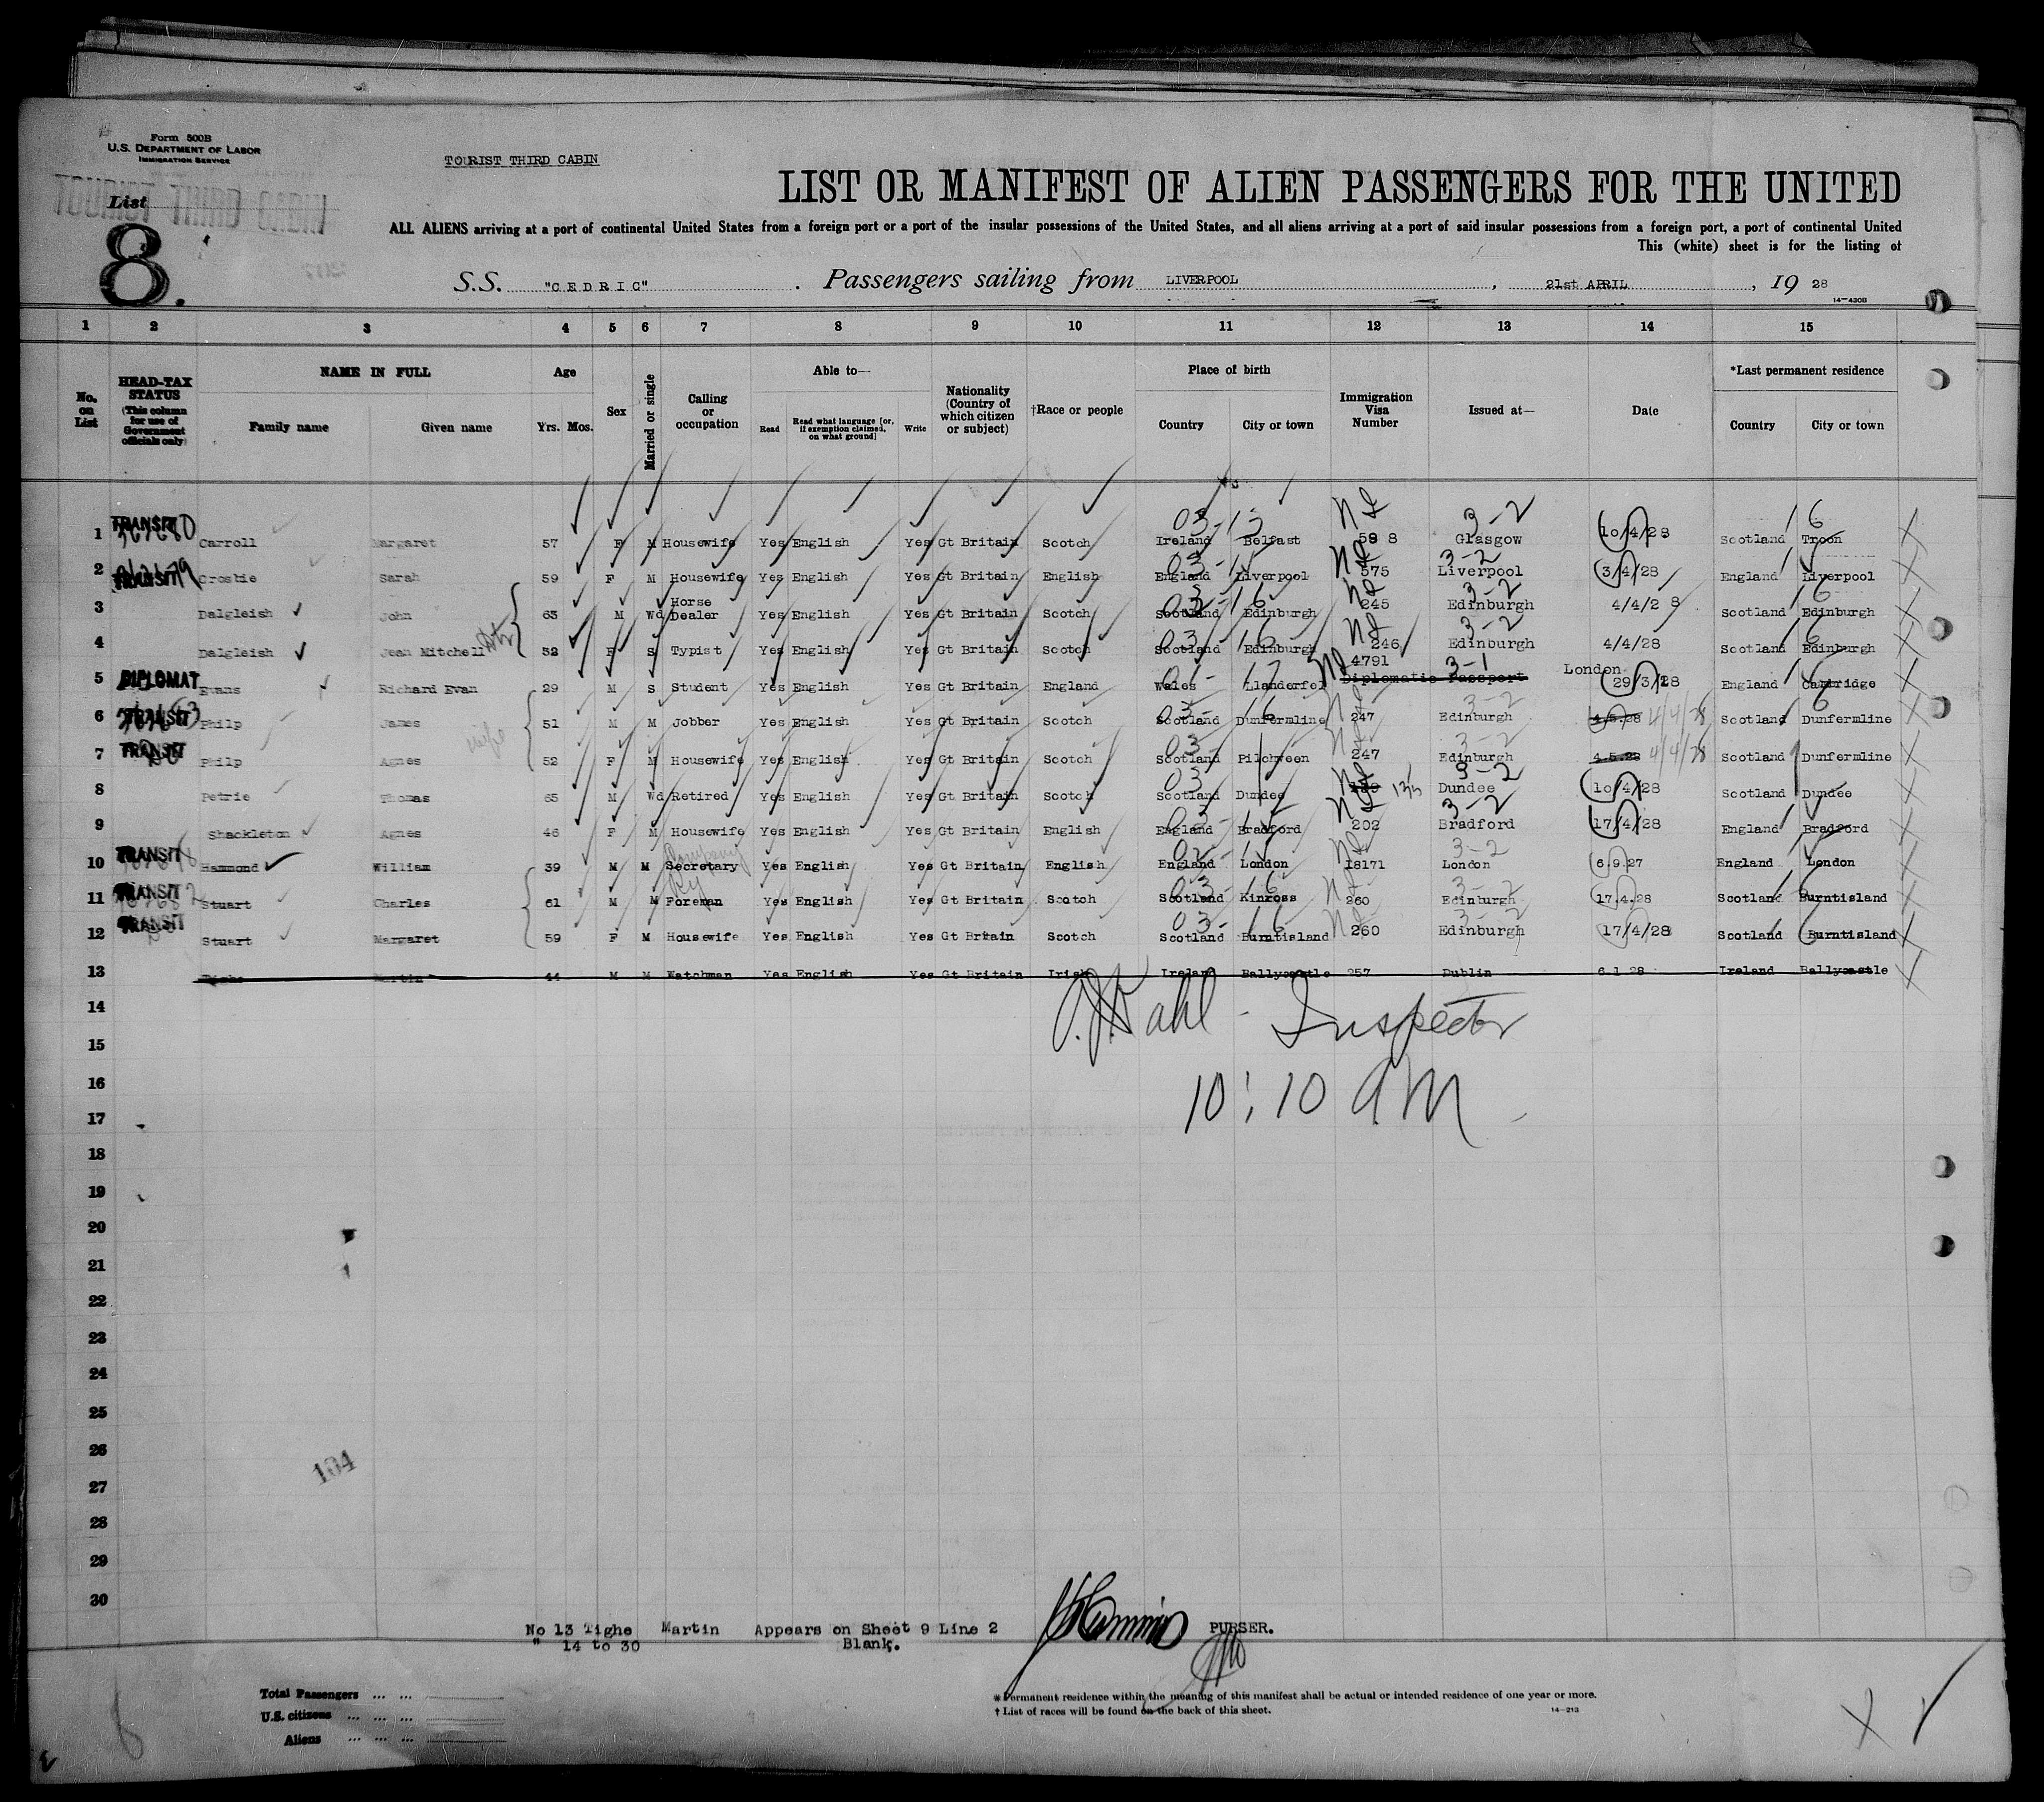 Form 500B
U.S. DEPARTMENT OF LABOR
IMMIGRATION SERVICE
TOURIST THIRD CABIN
TOURIST THIRD CABIN
List
8.
LIST OR MANIFEST OF ALIEN PASSENGERS FOR THE UNITED
ALL ALIENS arriving at a port of continental United States from a foreign port or a port of the insular possessions of the United States, and all aliens arriving at a port of said insular possessions from a foreign port, a port of continental United
This (white) sheet is for the listing of
S.S. "CEDRIC" . Passengers sailing from LIVERPOOL , 21st APRIL , 19 28
14-430B
1 2 3 4 5 6 7 8 9 10 11 12 13 14 15
No. on List
HEAD-TAX STATUS (This column for use of Government officials only)
NAME IN FULL Family name Given name
Age Yrs. Mos.
Sex
Married or single
Calling or occupation
Able to— Read Read what language [or, if exemption claimed, on what ground] Write
Nationality (Country of which citizen or subject)
†Race or people
Place of birth Country City or town
Immigration Visa Number
Issued at—
Date
*Last permanent residence Country City or town
1 TRANSIT Carroll Margaret 57 F M Housewife Yes English Yes Gt Britain Scotch Ireland Belfast 03-13 59 8 Glasgow 3-2 10/4/28 Scotland Troon 16
2 TRANSIT Crosbie Sarah 59 F M Housewife Yes English Yes Gt Britain English England Liverpool 575 Liverpool 3-2 3/4/28 England Liverpool
3 Dalgleish John 63 M Wd Horse Dealer Yes English Yes Gt Britain Scotch Scotland Edinburgh 03-16 245 Edinburgh 3-2 4/4/2 8 Scotland Edinburgh 16
4 Dalgleish Jean Mitchell 52 F S Typist Yes English Yes Gt Britain Scotch Scotland Edinburgh 03-16 246 Edinburgh 3-2 4/4/28 Scotland Edinburgh 16
5 DIPLOMAT Evans Richard Evan 29 M S Student Yes English Yes Gt Britain England Wales Llanderfel 4791 Diplomatic Passport 3-1 London 29/3/28 England Cambridge
6 TRANSIT Philp James 51 M M Jobber Yes English Yes Gt Britain Scotch Scotland Dunfermline 03-16 247 Edinburgh 3-2 4.5.28 4/4/28 Scotland Dunfermline 16
7 TRANSIT Philp Agnes wife 52 F M Housewife Yes English Yes Gt Britain Scotch Scotland Pilchween 247 Edinburgh 3-2 4.5.28 4/4/28 Scotland Dunfermline
8 Petrie Thomas 65 M Wd Retired Yes English Yes Gt Britain Scotch Scotland Dundee Dundee 3-2 10/4/28 Scotland Dundee
9 Shackleton Agnes 46 F M Housewife Yes English Yes Gt Britain English England Bradford 202 Bradford 3-2 17/4/28 England Bradford
10 TRANSIT Hammond William 39 M M Company Secretary Yes English Yes Gt Britain English England London 18171 London 3-2 6.9.27 England London
11 TRANSIT Stuart Charles 61 M M Ry Foreman Yes English Yes Gt Britain Scotch Scotland Kinross 03-16 260 Edinburgh 3-2 17.4.28 Scotland Burntisland 16
12 TRANSIT Stuart Margaret 59 F M Housewife Yes English Yes Gt Britain Scotch Scotland Burntisland 03-16 260 Edinburgh 3-2 17/4/28 Scotland Burntisland
13 Tighe Martin 44 M M Watchman Yes English Yes Gt Britain Irish Ireland Ballycastle 257 Dublin 6.1.28 Ireland Ballycastle
14
Inspector
15
16
10:10 AM
17
18
19
20
21
22
23
24
25
26
27
104
28
29
30
No 13 Tighe Martin Appears on Sheet 9 Line 2
" 14 to 30 Blank.
PURSER.
Total Passengers ... ...
U.S. citizens ... ... ...
Aliens ... ... ...
* Permanent residence within the meaning of this manifest shall be actual or intended residence of one year or more.
† List of races will be found on the back of this sheet.
14-213